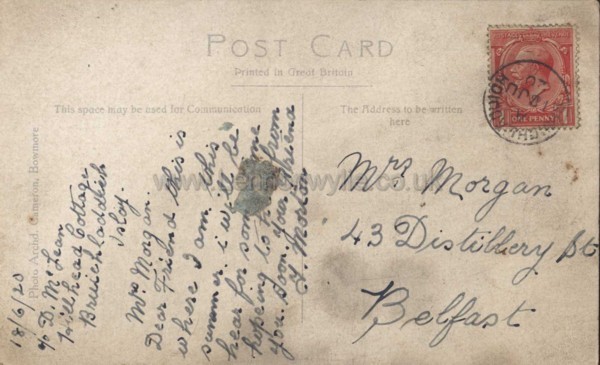 POST CARD
Printed in Great Britain
This space may be used for Communication
The Address to be written
here
Photo Archd. Cameron, Bowmore
18/6/20
c/o D. McLean
Hillhead Cottage
Bruichladdich
Islay.
Mrs Morgan.
Dear Friend this is
where I am this
summer. i will be
hear for some
hopeing to from
you soon your friend
J. Morton
Mrs Morgan
43 Distillery St
Belfast
ONE PENNY